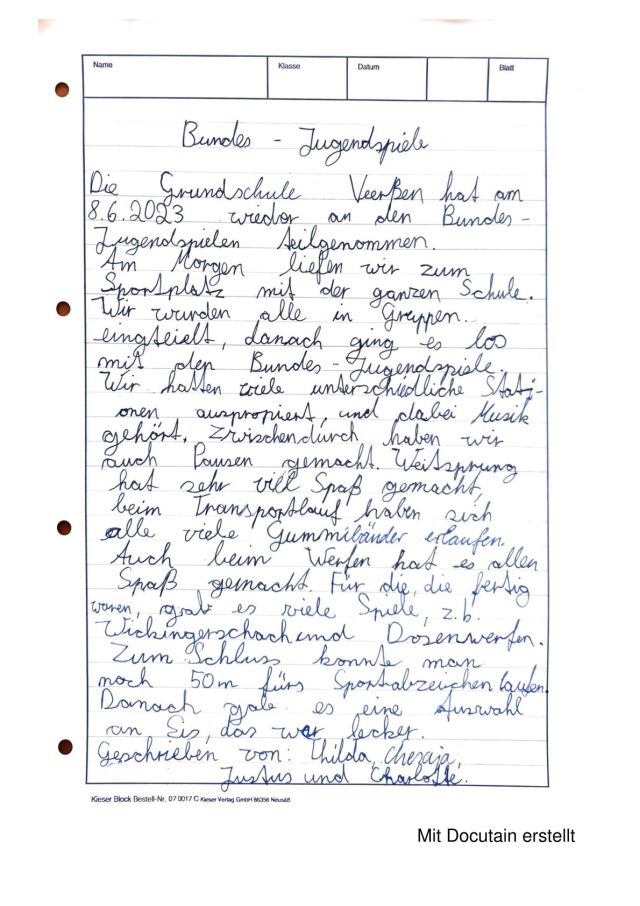 Name Klasse Datum Blatt
Bundes - Jugendspiele
Die Grundschule Veerßen hat am
8.6.2023 wieder an den Bundes -
Jugendspielen teilgenommen.
Am Morgen liefen wir zum
Sportplatz mit der ganzen Schule.
Wir wurden alle in Gruppen
eingteielt, danach ging es los
mit den Bundes - Jugendspiele.
Wir hatten viele unterschiedliche Stati-
onen auspropiert, und dabei Musik
gehört. Zwischendurch haben wir
auch Pausen gemacht. Weitsprung
hat sehr viel Spaß gemacht,
beim Transportlauf haben sich
alle viele Gummibänder erlaufen.
Auch beim Werfen hat es allen
Spaß gemacht. Für die, die fertig
waren, gab es viele Spiele, z.b.
Wickingerschach und Dosenwerfen.
Zum Schluss konnte man
noch 50m fürs Sportabzeichen laufen.
Danach gab es eine Auswahl
an Eis, das war lecker.
Geschrieben von: Thilda,
Justus und Charlotte.
Kieser Block Bestell-Nr. 07 0017 C Kieser Verlag GmbH 86356 Neusäß
Mit Docutain erstellt